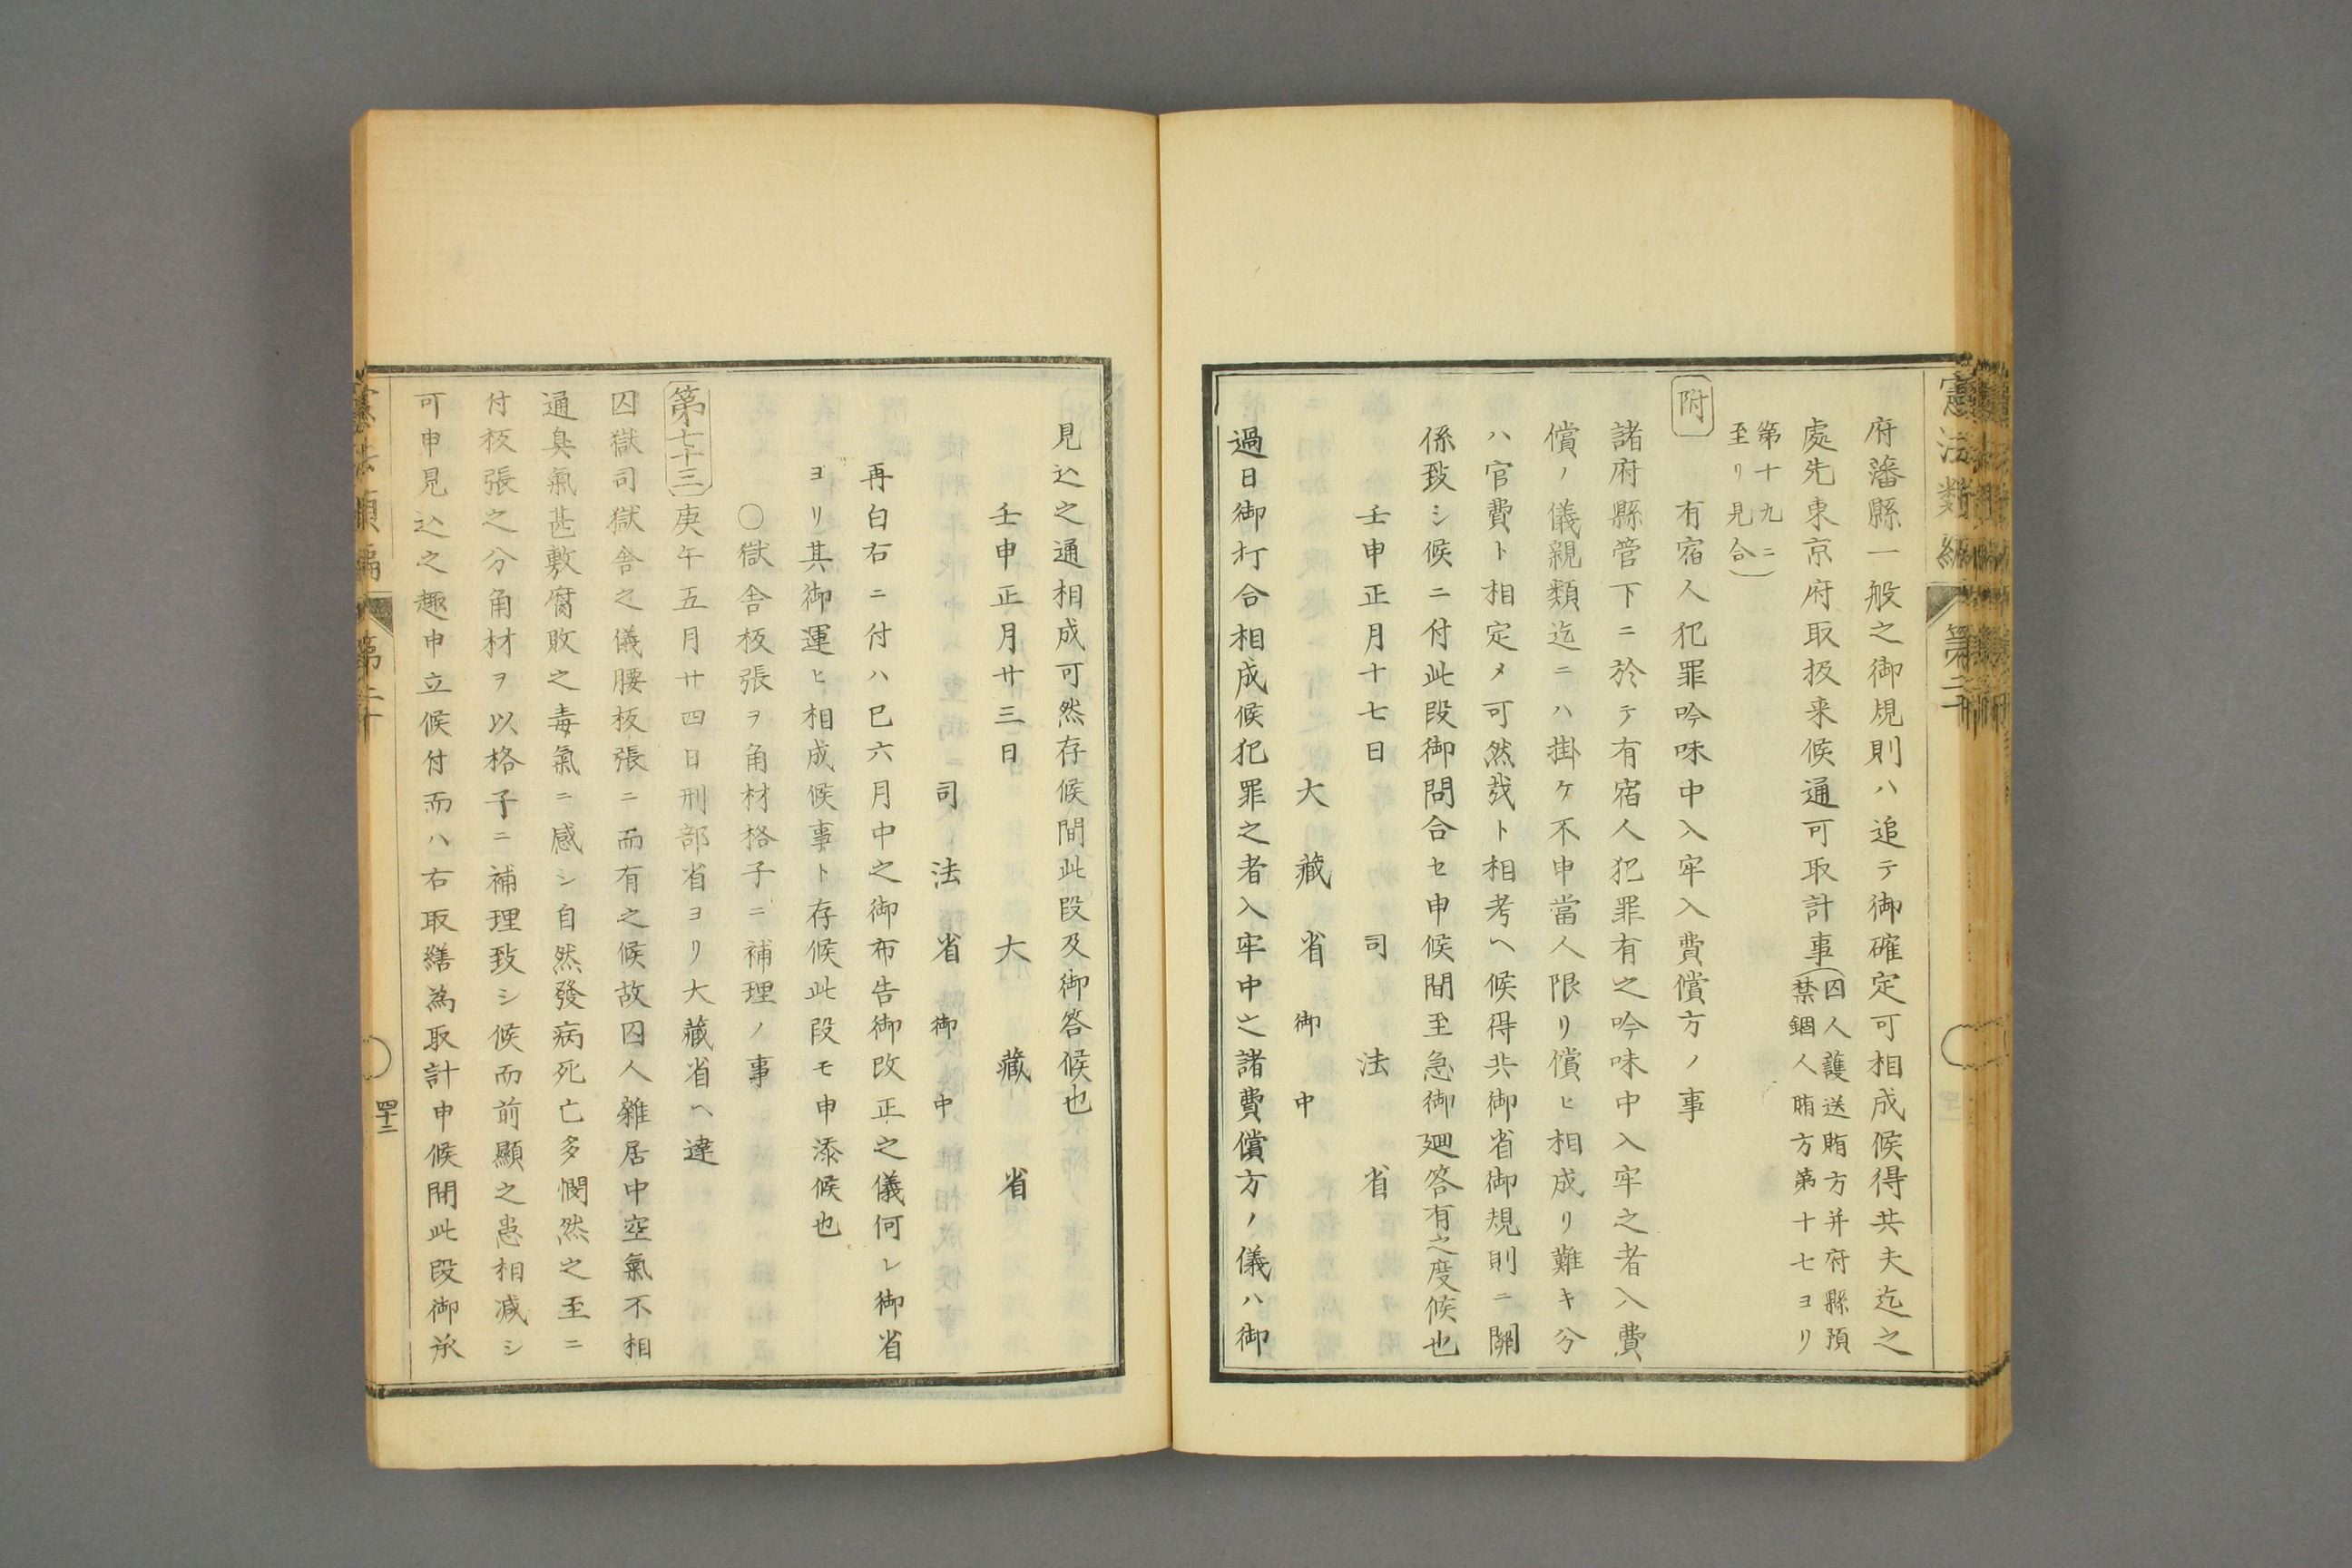 憲法類編　第二十
府藩縣一般之御規則ハ追テ御確定可相成候得共夫迄之
處先東京府取扱来候通可取計事(囚人護送賄方并府縣預
禁錮人賄方第十七ヨリ
第十九ニ
至リ見合)
附
有宿人犯罪吟味中入牢入費償方ノ事
諸府縣管下ニ於テ有宿人犯罪有之吟味中入牢之者入費
償ノ儀親類迄ニハ掛ケ不申當人限リ償ヒ相成リ難キ分
ハ官費ト相定メ可然哉ト相考ヘ候得共御省御規則ニ關
係致シ候ニ付此段御問合セ申候間至急御廻答有之度候也
壬申正月十七日　司法省
大藏省御中
過日御打合相成候犯罪之者入牢中之諸費償方ノ儀ハ御
見込之通相成可然存候間此段及御答候也
壬申正月廿三日　大藏省
司法省御中
再白右ニ付ハ巳六月中之御布告御改正之儀何レ御省
ヨリ其御運ヒ相成候事ト存候此段モ申添候也
○獄舎板張ヲ角材格子ニ補理ノ事
第七十三　庚午五月廿四日刑部省ヨリ大藏省ヘ達
囚獄司獄舎之儀腰板張ニ而有之候故囚人雜居中空氣不相
通臭氣甚敷腐敗之毒氣ニ感シ自然發病死亡多憫然之至ニ
付板張之分角材ヲ以格子ニ補理致シ候而前顯之患相减シ
可申見込之趣申立候付而ハ右取繕為取計申候間此段御承
憲法類編　第二十
四十二